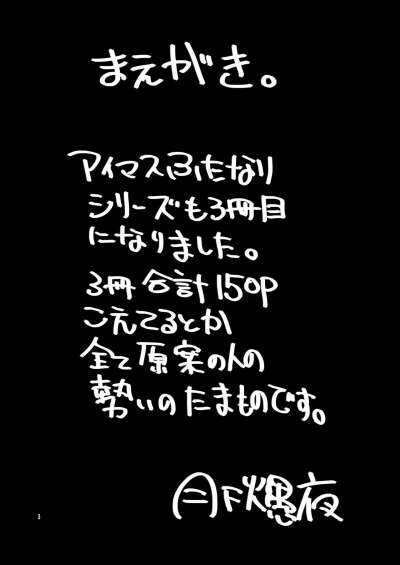 まえがき。
アイマスふたなり
シリーズも3冊目
になりました。
3冊合計150p
こえてるとか
全て原案の人の
勢いのたまものです。
月下爆夜
3